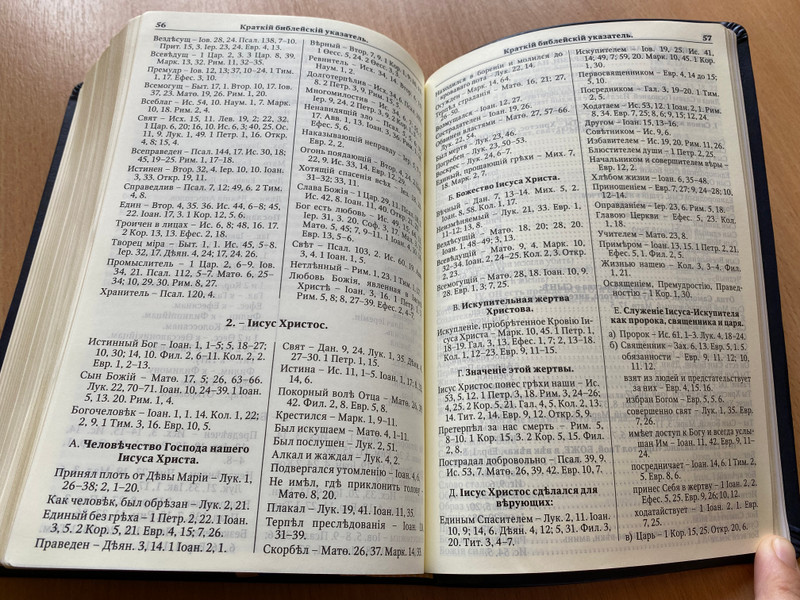 56
Краткій библейскій указатель.
Вездѣсущ – Іов. 28, 24. Псал. 138, 7–10.
Прит. 15, 3. Іер. 23, 24. Евр. 4, 13.
Всевѣдущ – 1 Цар. 2, 3. 3 Цар. 8, 39.
Марк. 13, 32. Рим. 11, 32–35.
Премудр – Іов. 12, 13; 37, 10–24. 1 Тим.
1, 17. Ефес. 3, 10.
Всемогущ – Быт. 17, 1. Втор. 10, 17. Іов.
37, 23. Матѳ. 19, 26. Рим. 1, 20.
Всеблаг – Ис. 54, 10. Наум. 1, 7. Марк.
10, 18. Рим. 2, 4.
Свят – Исх. 15, 11. Лев. 19, 2; 22, 32.
1 Цар. 6, 20; 16, 10. Ис. 6, 3; 40, 25. Ос.
11, 9. Лук. 1, 49. 1 Петр. 1, 16. Откр.
4, 8; 15, 4.
Всеправеден – Псал. 144, 17. Ис. 30, 18;
45, 19–25. Рим. 1, 17–18.
Истинен – Втор. 32, 4. Іер. 10, 10. Іоан.
3, 33. Откр. 19, 11.
Справедлив – Псал. 7, 12; 49, 6. 2 Тим.
4, 8.
Един – Втор. 4, 35. 36. Ис. 44, 6–8; 45,
22. Іоан. 17, 3. 1 Кор. 12, 5. 6.
Троичен в лицах – Ис. 6, 8; 48, 16. 17.
2 Кор. 13, 13. Ефес. 2, 18.
Творец міра – Быт. 1, 1. Ис. 45, 5–8.
Іер. 32, 17. Дѣян. 4, 24; 17, 24. 26.
Промыслитель – 1 Цар. 2, 6–9. Іов.
34, 21. Псал. 112, 5–7. Матѳ. 6, 25–
34; 10, 29. 30. Рим. 8, 27.
Хранитель – Псал. 120, 4.
Вѣрный – Втор. 7, 9. 1 Кор.
1 Ѳесс. 5, 24. 2 Ѳесс.
Ревнитель – Исх. 34, 14.
Наум. 1, 2.
Долготерпѣлив – Исх.
8. 2 Петр. 3, 9. Рим.
Многомилостив –
Іер. 9, 24. 2 Петр.
Ненавидящій зло –
17. Авв. 1, 13. Іоан. 3, 36.
Ефес. 5, 6.
Наказывающій неправду –
Евр. 2, 2.
Огонь поядающій – Втор. 4, 24.
22, 9. Ис. 33, 14. Евр. 12, 29.
Хотящій спасенія всѣх –
31–32; 33, 11.
Слава Божія – 1 Цар. 29, 11.
Ис. 42, 8. Іоан. 11, 40.
Бог есть любовь – Ис. 49,
Іер. 31, 3. 20. Соф. 3, 17.
Матѳ. 5, 45; 7, 9–11. 1 Іоан.
Евр. 13, 5–6.
Свѣт – Псал. 103, 2. Ис. 60,
3, 4. 1 Іоан. 1, 5.
Нетлѣнный – Рим. 1, 23. 1 Тим.
Любовь Божія, явленная в
Христѣ – Іоан. 3, 16. 1 Петр.
Рим. 5, 8; 8, 27–39. Ефес. 2, 4–7.
2. – Іисус Христос.
Истинный Бог – Іоан. 1, 1–5; 5, 18–27;
10, 30; 14, 10. Фил. 2, 6–11. Кол. 2, 2.
Евр. 1, 2–13.
Сын Божій – Матѳ. 17, 5; 26, 63–66.
Лук. 22, 70–71. Іоан. 10, 24–39. 1 Іоан.
5, 13. 20. Рим. 1, 4.
Богочеловѣк – Іоан. 1, 1. 14. Кол. 1, 22;
2, 9. 1 Тим. 3, 16. Евр. 10, 5.
А. Человѣчество Господа нашего
Іисуса Христа.
Принял плоть от Дѣвы Маріи – Лук. 1,
26–38; 2, 1–20.
Как человѣк, был обрѣзан – Лук. 2, 21.
Единый без грѣха – 1 Петр. 2, 22. 1 Іоан.
3, 5. 2 Кор. 5, 21. Евр. 4, 15; 7, 26.
Праведен – Дѣян. 3, 14. 1 Іоан. 2, 1.
Свят – Дан. 9, 24. Лук. 1, 35. Дѣян.
27–30. 1 Петр. 1, 15.
Истина – Ис. 11, 1–5. Іоан. 1, 17;
14, 6.
Покорный волѣ Отца – Матѳ. 26,
42. Фил. 2, 8. Евр. 5, 8.
Крестился – Марк. 1, 9–11.
Был искушаем – Матѳ. 4, 1–11.
Был послушен – Лук. 2, 51.
Алкал и жаждал – Лук. 4, 2.
Подвергался утомленію – Іоан. 4,
Не имѣл, гдѣ приклонить голову
Матѳ. 8, 20.
Плакал – Лук. 19, 41. Іоан. 11, 35.
Терпѣл преслѣдованія – Іоан.
31–39.
Скорбѣл – Матѳ. 26, 37. Марк. 14, 33.
Краткій библейскій указатель.
57
Находился в бореніи и молился до
кроваваго пота – Лук. 22, 14.
Осужден – Матѳ. 16, 21; 27,
Возмущался – Іоан. 12, 27.
Пострадателен – Іоан. 19, 26.
Обвинен властями – Матѳ. 27, 57–66.
Лук. 22, 54.
Был мертв – Лук. 23, 46.
Погребен – Лук. 23, 50–53.
Воскрес – Лук. 24, 6–7.
прощающій грѣхи – Мих. 7,
18. Марк. 2, 7.
Б. Божество Іисуса Христа.
Вѣчный – Дан. 7, 13–14. Мих. 5, 2.
Іоан. 8, 58. Кол. 1, 17.
Неизмѣняемый – Лук. 21, 33. Евр. 1,
11–12; 13, 8.
Вездѣсущій – Матѳ. 18, 20; 28, 20.
Іоан. 1, 48–49; 3, 13.
Всевѣдущій – Матѳ. 9, 4. Марк. 10,
32–34. Іоан. 2, 24–25. Кол. 2, 3. Откр.
2, 23.
Всемогущій – Матѳ. 28, 18. Іоан. 10, 9.
28. Евр. 1, 3; 7, 25.
В. Искупительная жертва
Христова.
Искупленіе, пріобрѣтенное Кровію Іи-
суса Христа – Марк. 10, 45. 1 Петр. 1,
18–19. Гал. 3, 13. Ефес. 1, 7; 2, 13–18.
Кол. 1, 12–23. Евр. 9, 11–15.
Г. Значеніе этой жертвы.
Іисус Христос понес грѣхи наши – Ис.
53, 5. 12. 1 Петр. 3, 18. Рим. 3, 24–26;
4, 25. 2 Кор. 5, 21. Гал. 4, 5. Кол. 2, 13.
14. Тит. 2, 14. Евр. 9, 12. Откр. 5, 9.
Претерпѣл за нас смерть – Рим. 5,
8–10. 1 Кор. 15, 3. 2 Кор. 5, 15. Фил.
2, 8.
Пострадал добровольно – Псал. 39, 9.
Ис. 53, 7. Матѳ. 26, 39, 42. Евр. 10, 7.
Д. Іисус Христос сдѣлался для
вѣрующих:
Единым Спасителем – Лук. 2, 11. Іоан.
10, 9; 14, 6. Дѣян. 4, 12; 5, 31. Фил. 3,
20. Тит. 3, 4–7.
Искупителем – Іов. 19, 25. Ис. 41,
14; 49, 7; 59, 20. Марк. 10, 45. 1 Кор.
1, 30.
Первосвященником – Евр. 4, 14 до 15;
5, 10.
Посредником – Гал. 3, 19–20. 1 Тим.
2, 5.
Ходатаем – Ис. 53, 12. 1 Іоан. 2, 1; Рим.
8, 34. Евр. 7, 25; 8, 6; 9, 15; 12, 24.
Другом – Іоан. 15, 13–16.
Совѣтником – Ис. 9, 6.
Избавителем – Ис. 19, 20. Рим. 11, 26.
Блюстителем души – 1 Петр. 2, 25.
Начальником и совершителем вѣры –
Евр. 12, 2.
Хлѣбом жизни – Іоан. 6, 35–48.
Приношеніем – Евр. 7, 27; 9, 24–28; 10,
12–14.
Оправданіем – Іер. 23, 6. Рим. 5, 18.
Главою Церкви – Ефес. 5, 23. Кол.
1, 18.
Учителем – Матѳ. 23, 8.
Примѣром – Іоан. 13, 15. 1 Петр. 2, 21.
Ефес. 5, 1. Фил. 2, 5.
Жизнью нашею – Кол. 3, 3–4. Фил.
1, 21.
Освященіем, Премудростію, Правед-
ностію – 1 Кор. 1, 30.
Е. Служеніе Іисуса-Искупителя
как пророка, священника и царя.
а) Пророк – Ис. 61, 1–3. Лук. 4, 18–24.
б) Священник – Зах. 6, 13. Евр. 5, 1. 5.
обязанности – Евр. 9, 11. 12; 10,
11. 12.
взят из людей и предстательствует
за них – Евр. 4, 15. 16.
избран Богом – Евр. 5, 5. 6.
совершенно свят – Лук. 1, 35. Евр.
7, 26.
имѣет доступ к Богу и всегда услы-
шан Им – Іоан. 11, 42. Евр. 9, 11–
24.
посредничает – Іоан. 14, 6. 1 Тим. 2,
5. Евр. 8, 6.
принес Себя в жертву – 1 Іоан. 2, 2.
Ефес. 5, 25. Евр. 9, 26; 10, 12.
ходатайствует – 1 Іоан. 2, 1. Евр.
7, 25.
в) Царь – 1 Кор. 15, 25. Откр. 20, 6.